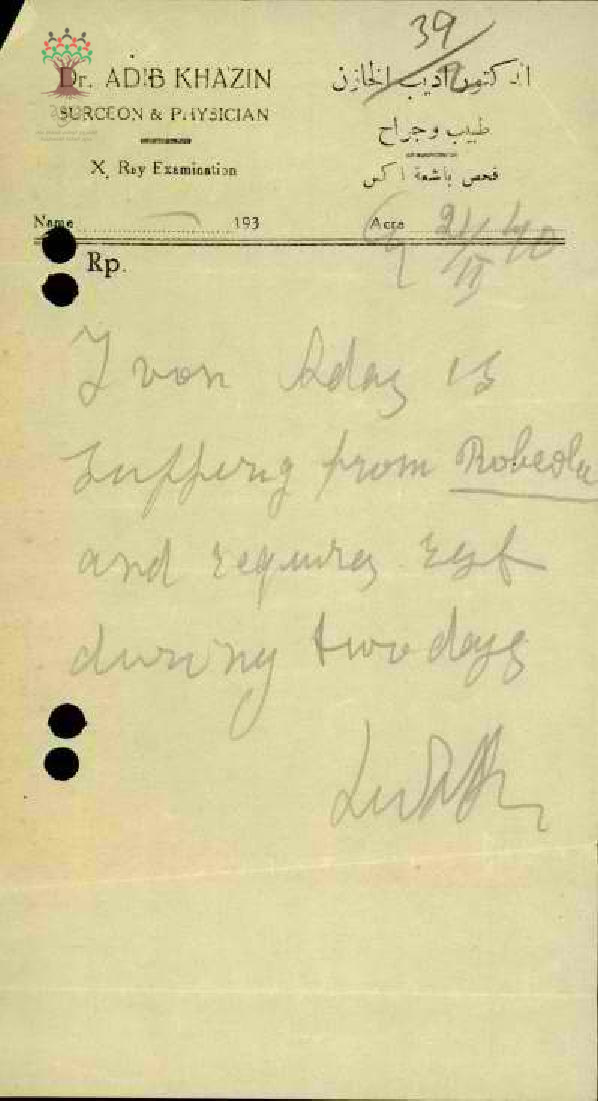 39
Dr. ADIB KHAZIN
SURGEON & PHYSICIAN
X, Ray Examination
الدكتور اديب الخازن
طبيب وجراح
فحص باشعة اكس
Name 193 Acre 21/II 40
Rp.
Ivon Aday is
suffering from Robeola
and requires rest
during two days